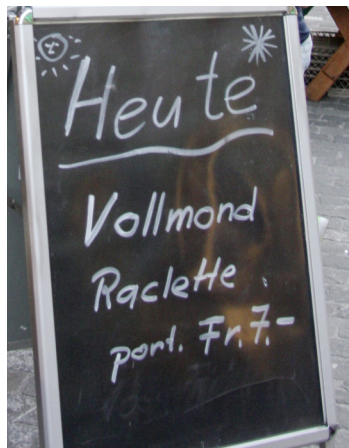 Heute
Vollmond
Raclette
port. Fr. 7.-